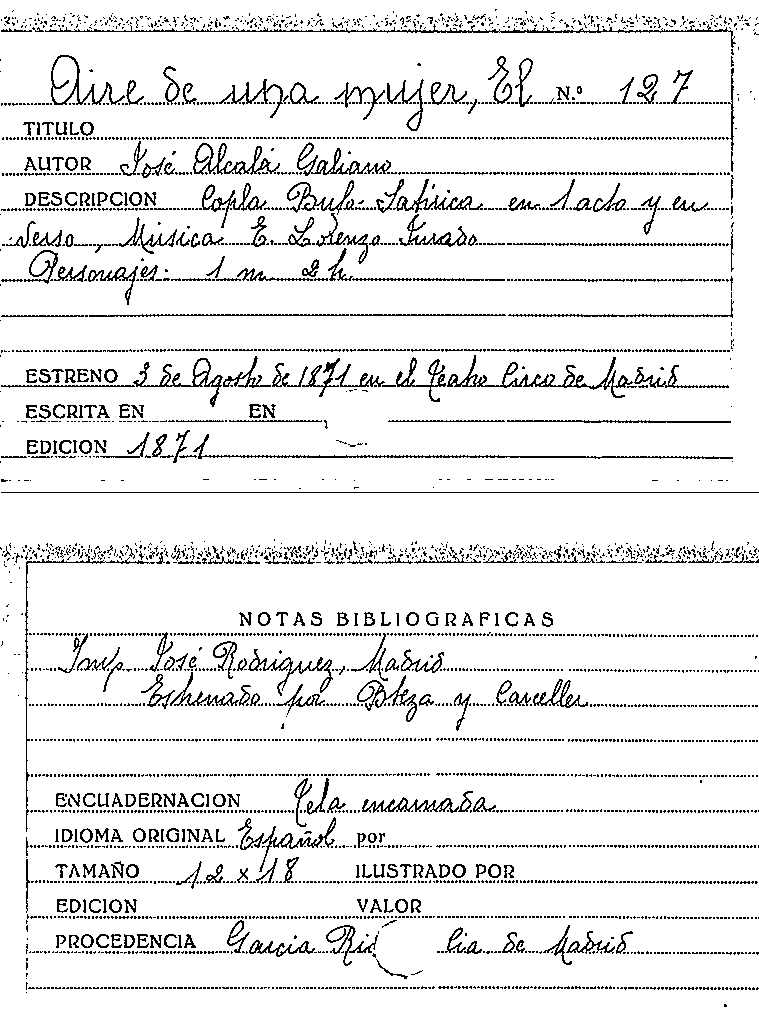 Aire de una mujer, El N.º 127
TITULO
AUTOR José Alcalá Galiano
DESCRIPCION Copla Bufo-Satírica en 1 acto y en
verso, Música E. Lorenzo Jurado
Personajes: 1 m. 2 h.
ESTRENO 3 de Agosto de 1871 en el Teatro Circo de Madrid
ESCRITA EN EN
EDICION 1871
NOTAS BIBLIOGRAFICAS
Imp. José Rodriguez, Madrid
Estrenado por y Carceller
ENCUADERNACION Tela encarnada
IDIOMA ORIGINAL Español por
TAMAÑO 12 x 18 ILUSTRADO POR
EDICION VALOR
PROCEDENCIA Garcia de Madrid